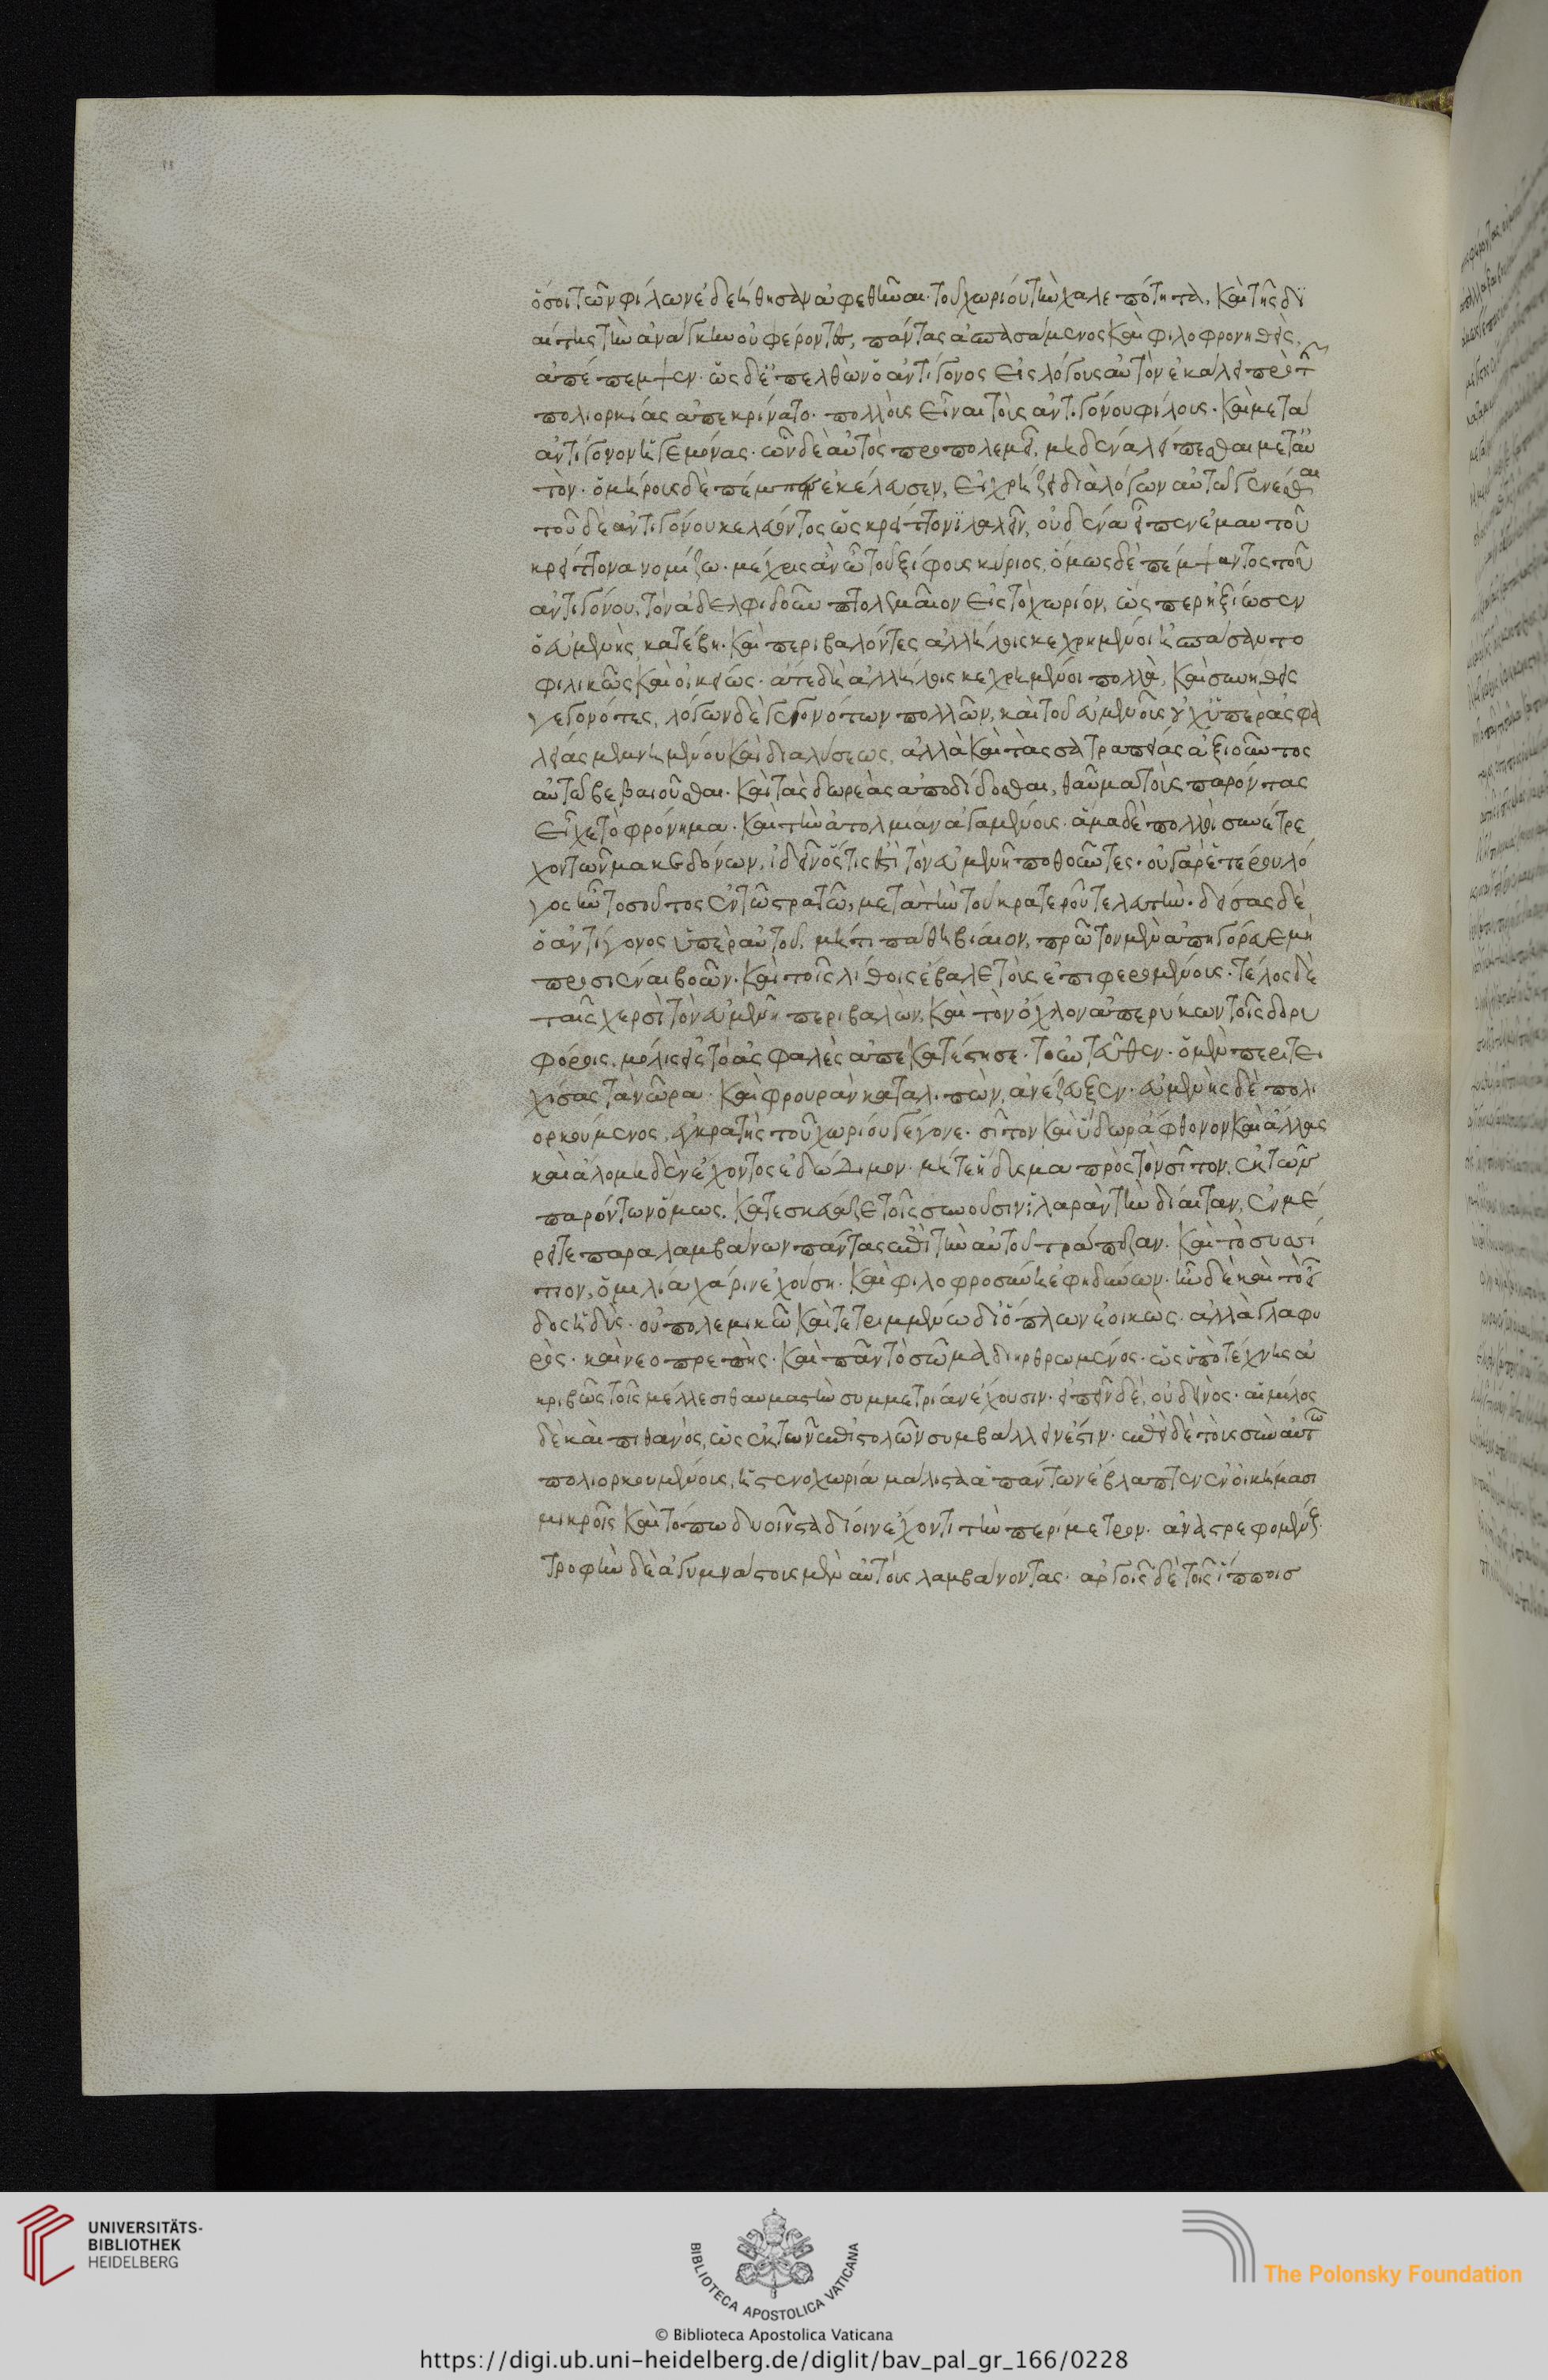 ὅσοι τῶν φίλων ἐδεήθησαν ἀφεθῆναι. τοῦ χωρίου τὴν χαλεπότητα, καὶ τῆς δι
αίτης τὴν ἀνάγκην οὐ φέροντες, πάντας ἀσπασάμενος καὶ φιλοφρονηθεὶς,
ἀπέπεμψεν. ὡς δ' ἐπελθὼν ὁ ἀντίγονος εἰς λόγους αὐτὸν ἐκάλει πρὸ τῆς
πολιορκίας ἀπεκρίνατο. πολλοὺς εἶναι τοὺς ἀντιγόνου φίλους. καὶ μετὰ
ἀντίγονον ἡγεμόνας. ὧν δὲ αὐτὸς προπολεμεῖ, μηδένα λείπεσθαι μετ' αὐ
τὸν. ὁμήρους δὲ πέμπειν ἐκέλευσεν, εἰ χρήζει διὰ λόγων αὐτῷ γενέσθαι
τοῦ δὲ ἀντιγόνου κελεύοντος ὡς κρείττονι λαλεῖν, οὐδένα εἶπεν ἐμαυτοῦ
κρείττονα νομίζω. μέχρις ἂν ὦ τοῦ ξίφους κύριος, ὅμως δὲ πέμψαντος τοῦ
ἀντιγόνου, τὸν ἀδελφιδοῦν πτολεμαῖον εἰς τὸ χωρίον, ὥσπερ ἠξίωσεν
ὁ εὐμένης, κατέβη. καὶ περιβαλόντες ἀλλήλοις κεχρημένοι ἠσπάσαντο
φιλικῶς καὶ οἰκείως. ἅτε δὴ ἀλλήλοις κεχρημένοι πολλὰ, καὶ συνήθεις
γεγονότες, λόγων δὲ γενομένων πολλῶν, καὶ τοῦ εὐμένους οὐχ ὑπὲρ ἀσφα
λείας μεμνημένου καὶ διαλύσεως, ἀλλὰ καὶ τὰς σατραπείας ἀξιοῦντος
αὐτῷ βεβαιοῦσθαι. καὶ τὰς δωρεὰς ἀποδίδοσθαι, θαῦμα τοὺς παρόντας
εἶχε τὸ φρόνημα. καὶ τὴν εὐτολμίαν ἀγαμένους. ἅμα δὲ πολλοὶ συνέτρε
χον τῶν μακεδόνων, ἰδεῖν ὅστις ἐστὶ τὸν εὐμένη ποθοῦντες. οὐ γὰρ ἑτέρου λό
γος ἦν τοσοῦτος ἐν τῷ στρατῷ, μετὰ τὴν τοῦ κρατεροῦ τελευτήν. δείσας δὲ
ὁ ἀντίγονος ὑπὲρ αὐτοῦ, μή τι πάθῃ βίαιον, πρῶτον μὲν ἀπηγόρευε μὴ
προσιέναι βοῶν. καὶ τοῖς λίθοις ἔβαλε τοὺς ἐπιφερομένους. τέλος δὲ
ταῖς χερσὶ τὸν εὐμένη περιβαλὼν, καὶ τὸν ὄχλον ἀπερύκων τοῖς δορυ
φόροις, μόλις εἰς τὸ ἀσφαλὲς ἀπεκατέστησε. τὸ ἐντεῦθεν. ὁ μὲν περιτει
χίσας τὰ νῶρα. καὶ φρουρὰν καταλιπὼν, ἀνέζευξεν. εὐμένης δὲ πολι
ορκούμενος, ἐγκρατὴς τοῦ χωρίου γέγονε. σῖτον καὶ ὕδωρ ἄφθονον καὶ ἅλας
καὶ ἄλλο μηδὲν ἔχοντος ἐδώδιμον. μήτε ἥδυσμα πρὸς τὸν σῖτον, ἐκ τῶν
παρόντων ὅμως. κατεσκεύαζε τοῖς συνοῦσιν ἱλαρὰν τὴν δίαιταν, ἐν μέ
ρει τε παραλαμβάνων πάντας ἐπὶ τὴν αὐτοῦ τράπεζαν. καὶ τὸ συσσί
τιον, ὁμιλίᾳ χάριν ἐχούσῃ. καὶ φιλοφροσύνῃ ἐφηδύνων. ἦν δὲ καὶ τὸ εἶ
δος ἡδὺς. οὐ πολεμικῷ καὶ τετριμμένῳ δι' ὅπλων ἐοικὼς. ἀλλὰ γλαφυ
ρὸς. καὶ νεοπρεπὴς. καὶ πᾶν τὸ σῶμα διηρθρωμένος. ὡς ὑπὸ τέχνης ἀ
κριβῶς τοῖς μέλλεσι θαυμαστὴν συμμετρίαν ἔχουσιν. εἰπεῖν δὲ, οὐ δεινὸς. αἱμύλος
δὲ καὶ πιθανὸς, ὡς ἐκ τῶν ἐπιστολῶν συμβάλλειν ἐστίν. ἐπεὶ δὲ τοὺς σὺν αὐτῷ
πολιορκουμένους, ἡ στενοχωρία μάλιστα ἁπάντων ἔβλαπτεν ἐν οἰκήμασι
μικροῖς καὶ τόπῳ δυοῖν σταδίοιν ἔχοντι τὴν περίμετρον. ἀναστρεφομένους.
τροφὴν δὲ ἀγυμνάστους μὲν αὐτοὺς λαμβάνοντας. ἀργοῖς δὲ τοῖς ἵπποις
UNIVERSITÄTS-
BIBLIOTHEK
HEIDELBERG
BIBLIOTECA APOSTOLICA VATICANA
© Biblioteca Apostolica Vaticana
The Polonsky Foundation
https://digi.ub.uni-heidelberg.de/diglit/bav_pal_gr_166/0228